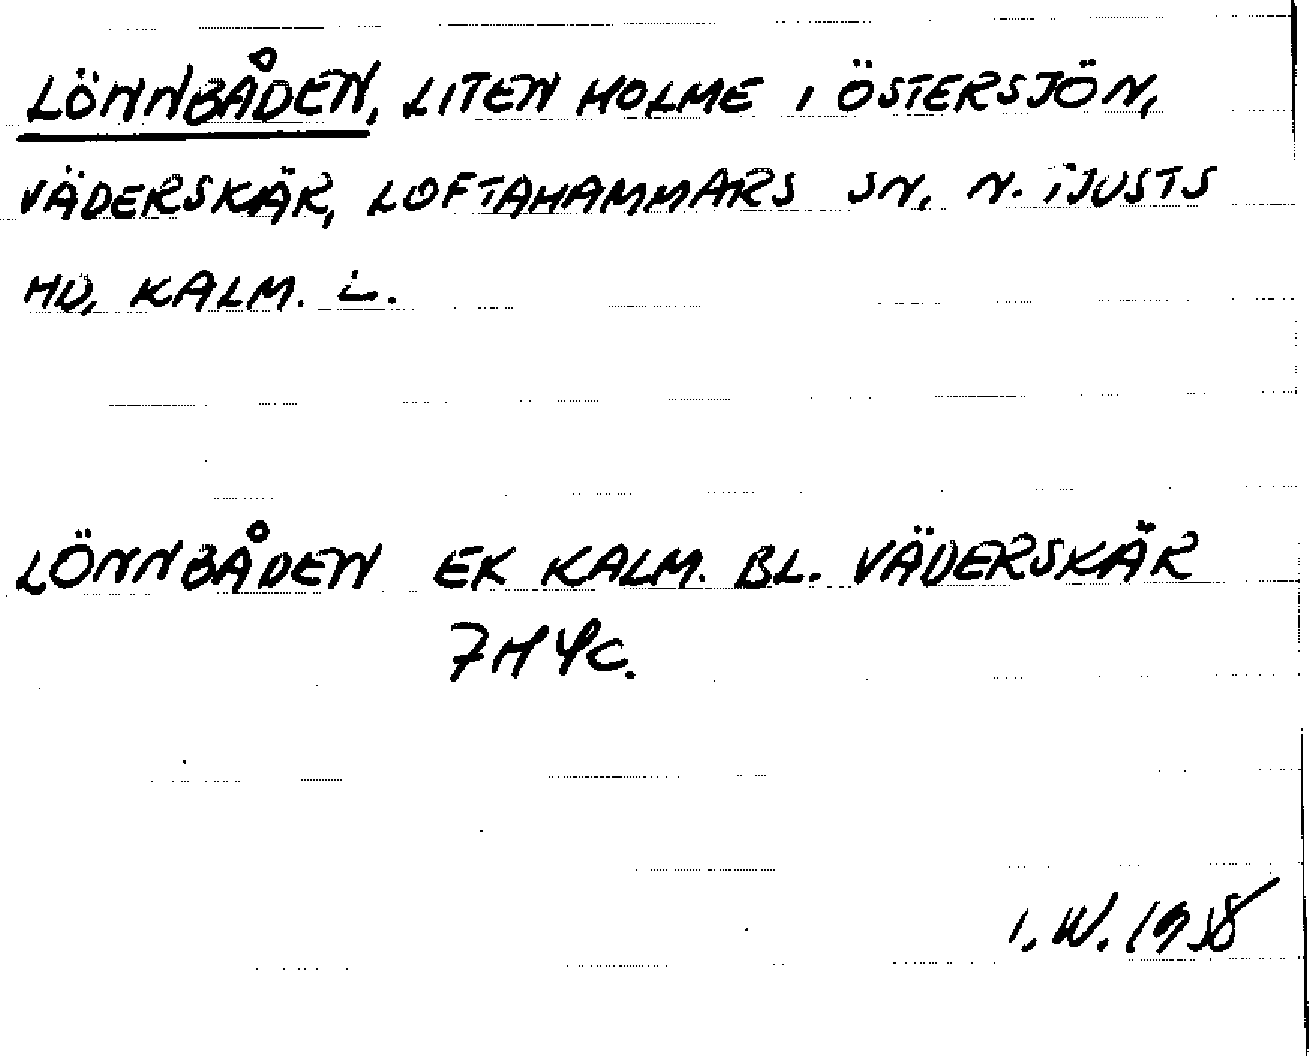 LÖNNBÅDEN, LITEN HOLME I ÖSTERSJÖN,
VÄDERSKÄR, LOFTAHAMMARS SN, N. TJUSTS
HD, KALM. L.
LÖNNBÅDEN EK KALM. BL. VÄDERSKÄR
7H 4c.
I. W. 1958